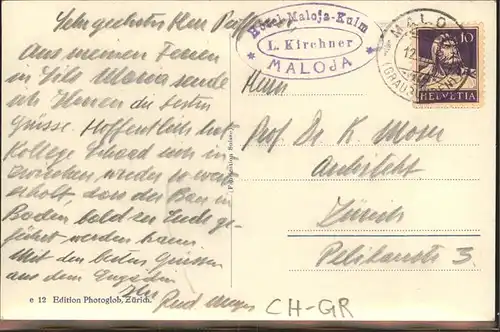 Sehr geehrter Herr Professor
Aus meinen Ferien
in Sils Maria sende
ich Ihnen die besten
Grüsse. Hoffentlich hat
Kollege Schaad sich in-
zwischen wieder so weit
erholt, dass der Bau in
Baden bald zu Ende ge-
führt werden kann.
Mit den besten Grüssen
aus dem Engadin
Ihr
e 12 Edition Photoglob, Zürich.
Hôtel Maloja-Kulm
L. Kirchner
MALOJA
MALO
12
(GRAUB
10
HELVETIA
Herrn
Prof. Dr. K. Moser
Architekt
Zürich
Pelikanstr 3.
CH-GR